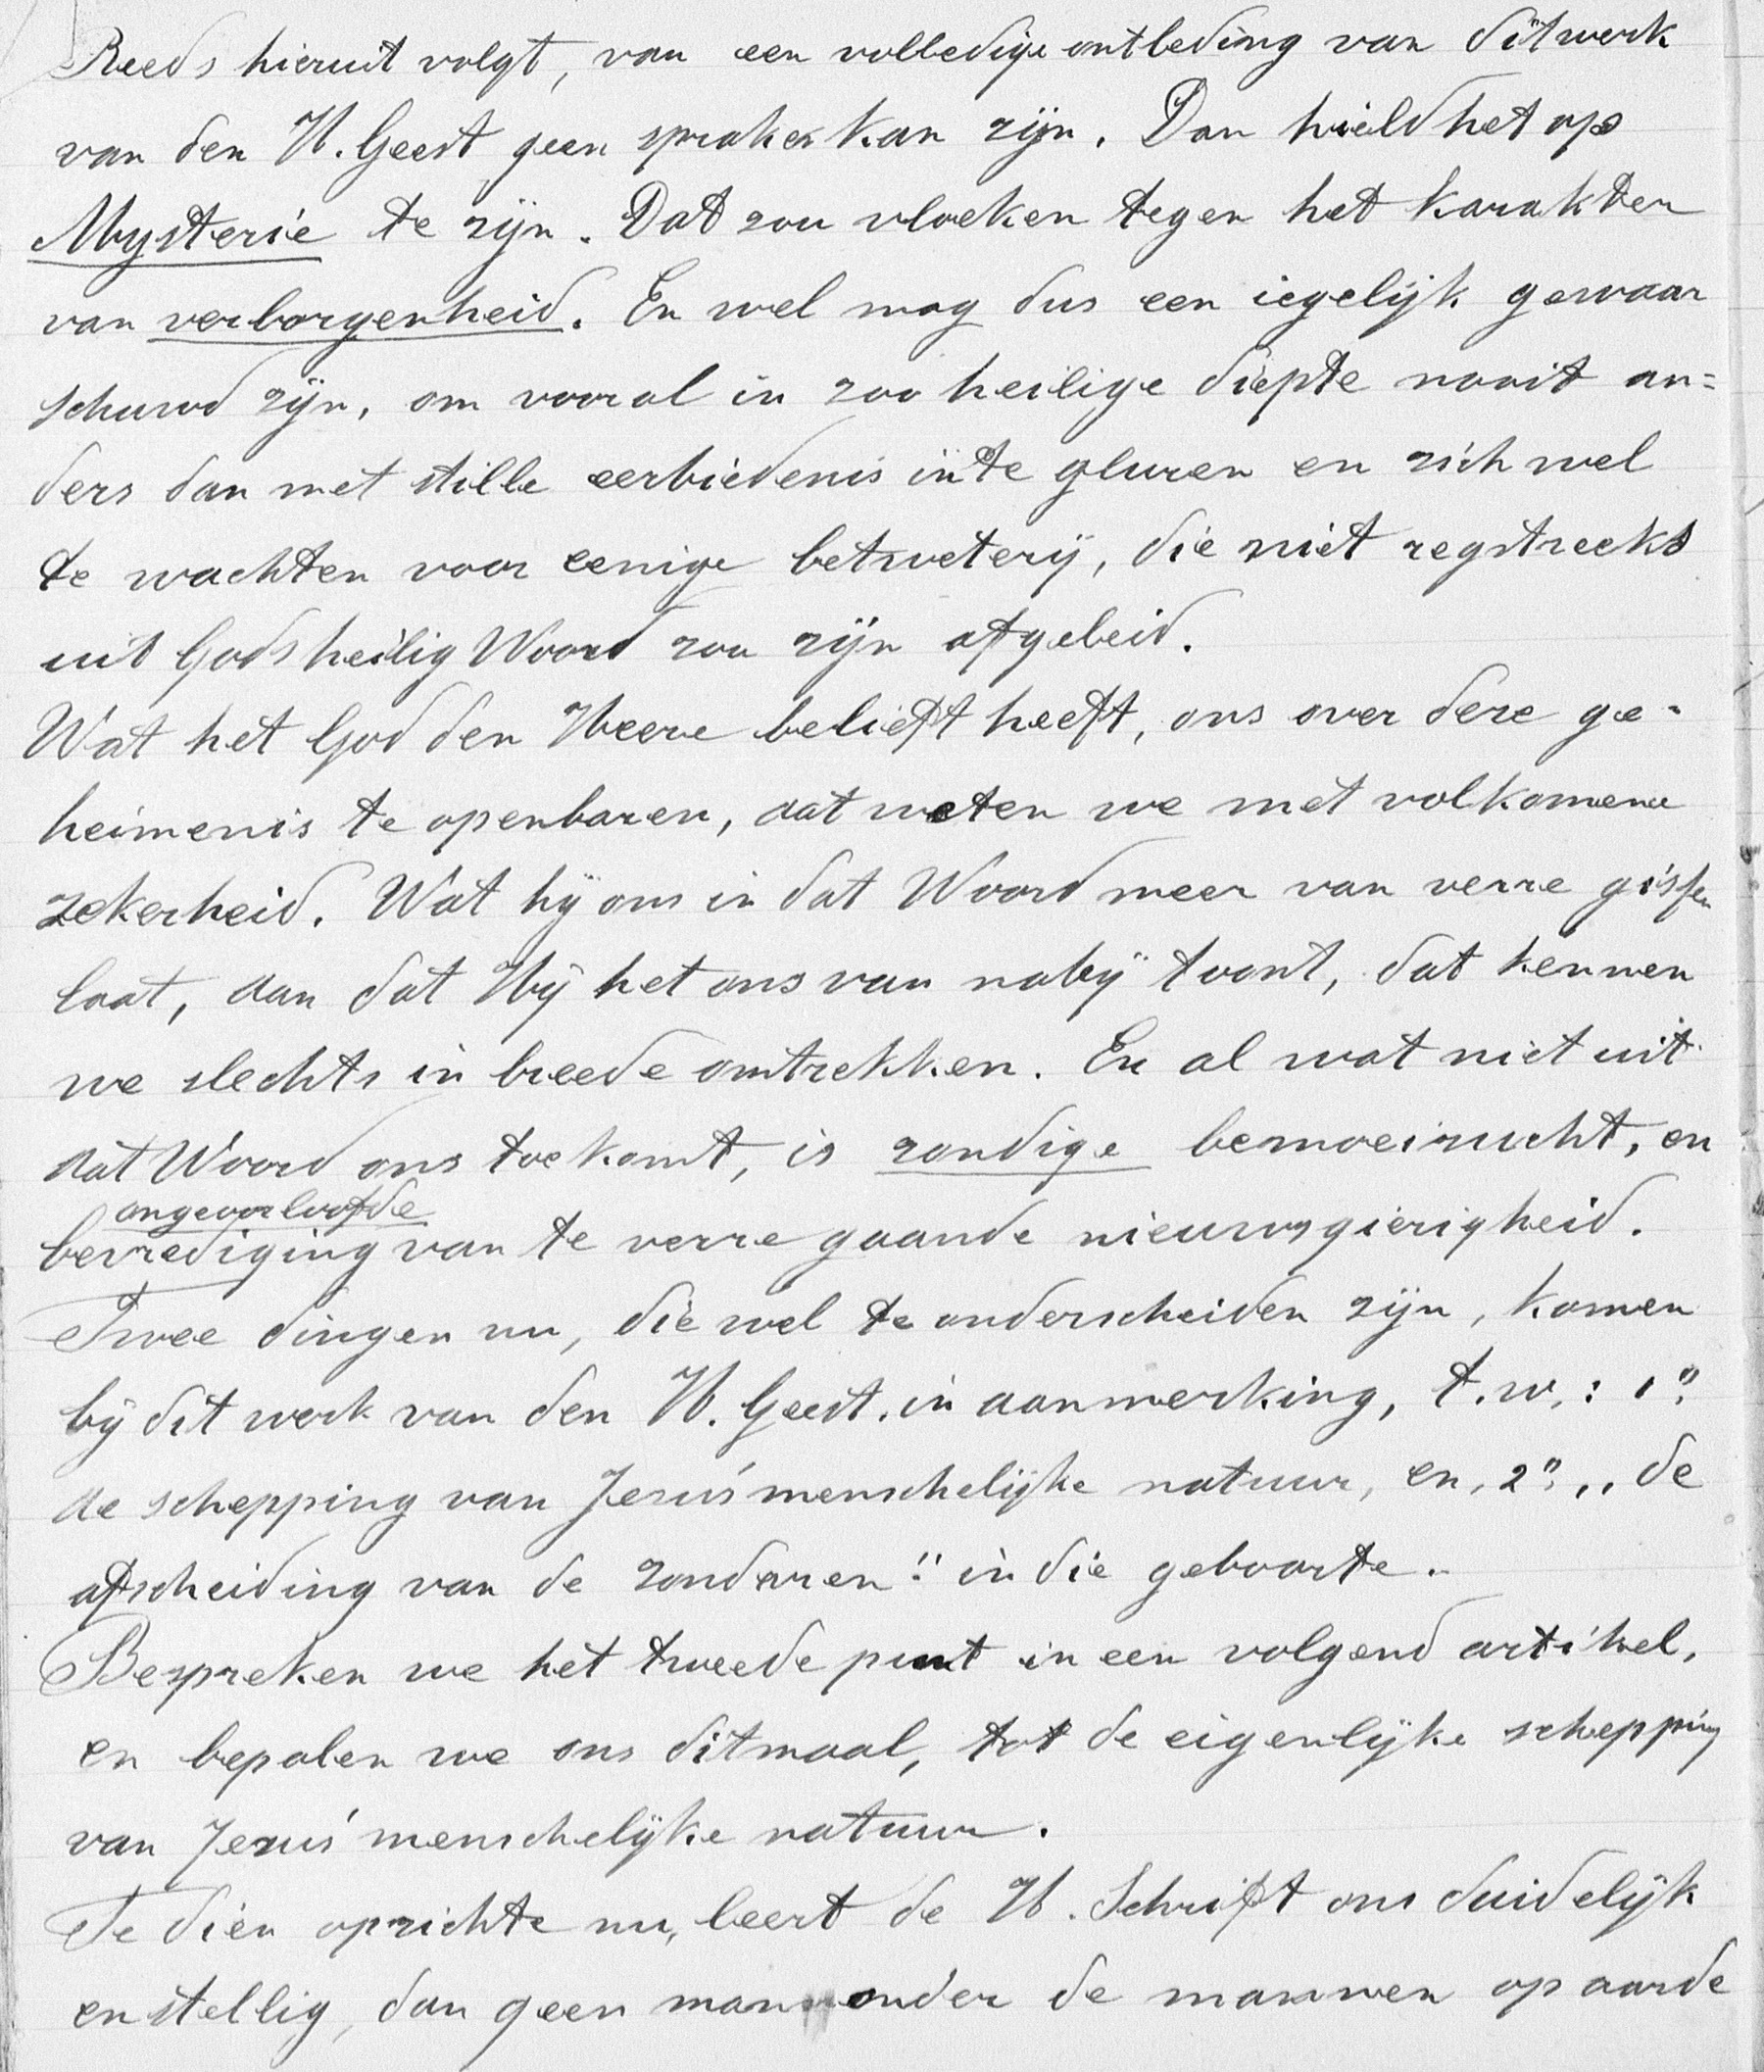 Reeds hieruit volgt, van een volledige ontleding van dit werk
van den H. Geest geen sprake kan zijn. Dan hield het op
Mysterie te zijn. Dat zou vloeken tegen het karakter
van verborgenheid. En wel mag dus een iegelijk gewaar
schuwd zijn, om vooral in zoo heilige diepte nooit an=
ders dan met stille eerbiedenis in te gluren en zich wel
te wachten voor eenige betweterij, die niet regstreeks
uit Gods heilig Woord zou zijn afgeleid.
Wat het God den Heere belieft heeft, ons over deze ge-
heimenis te openbaren, dat weten we met volkomene
zekerheid. Wat hij ons in dat Woord meer van verre gissen
laat, dan dat Hij het ons van nabij toont, dat kennen
we slechts in breede omtrekken. En al wat niet uit
dat Woord ons toekomt, is zondige bemoeizucht, en
ongeoorloofde
bevrediging van te verre gaande nieuwsgierigheid.
Twee dingen nu, die wel te onderscheiden zijn, komen
bij dit werk van den H. Geest in aanmerking, t.w.: 1º.
de schepping van Jezus' menschelijke natuur, en, 2º. ,,de
afscheiding van de zondaren" in die geboorte.
Bespreken we het tweede punt in een volgend artikel,
en bepalen we ons ditmaal, tot de eigenlijke schepping
van Jezus' menschelijke natuur.
Te dien opzichte nu, leert de H. Schrift ons duidelijk
en stellig, dan geen man onder de mannen op aarde